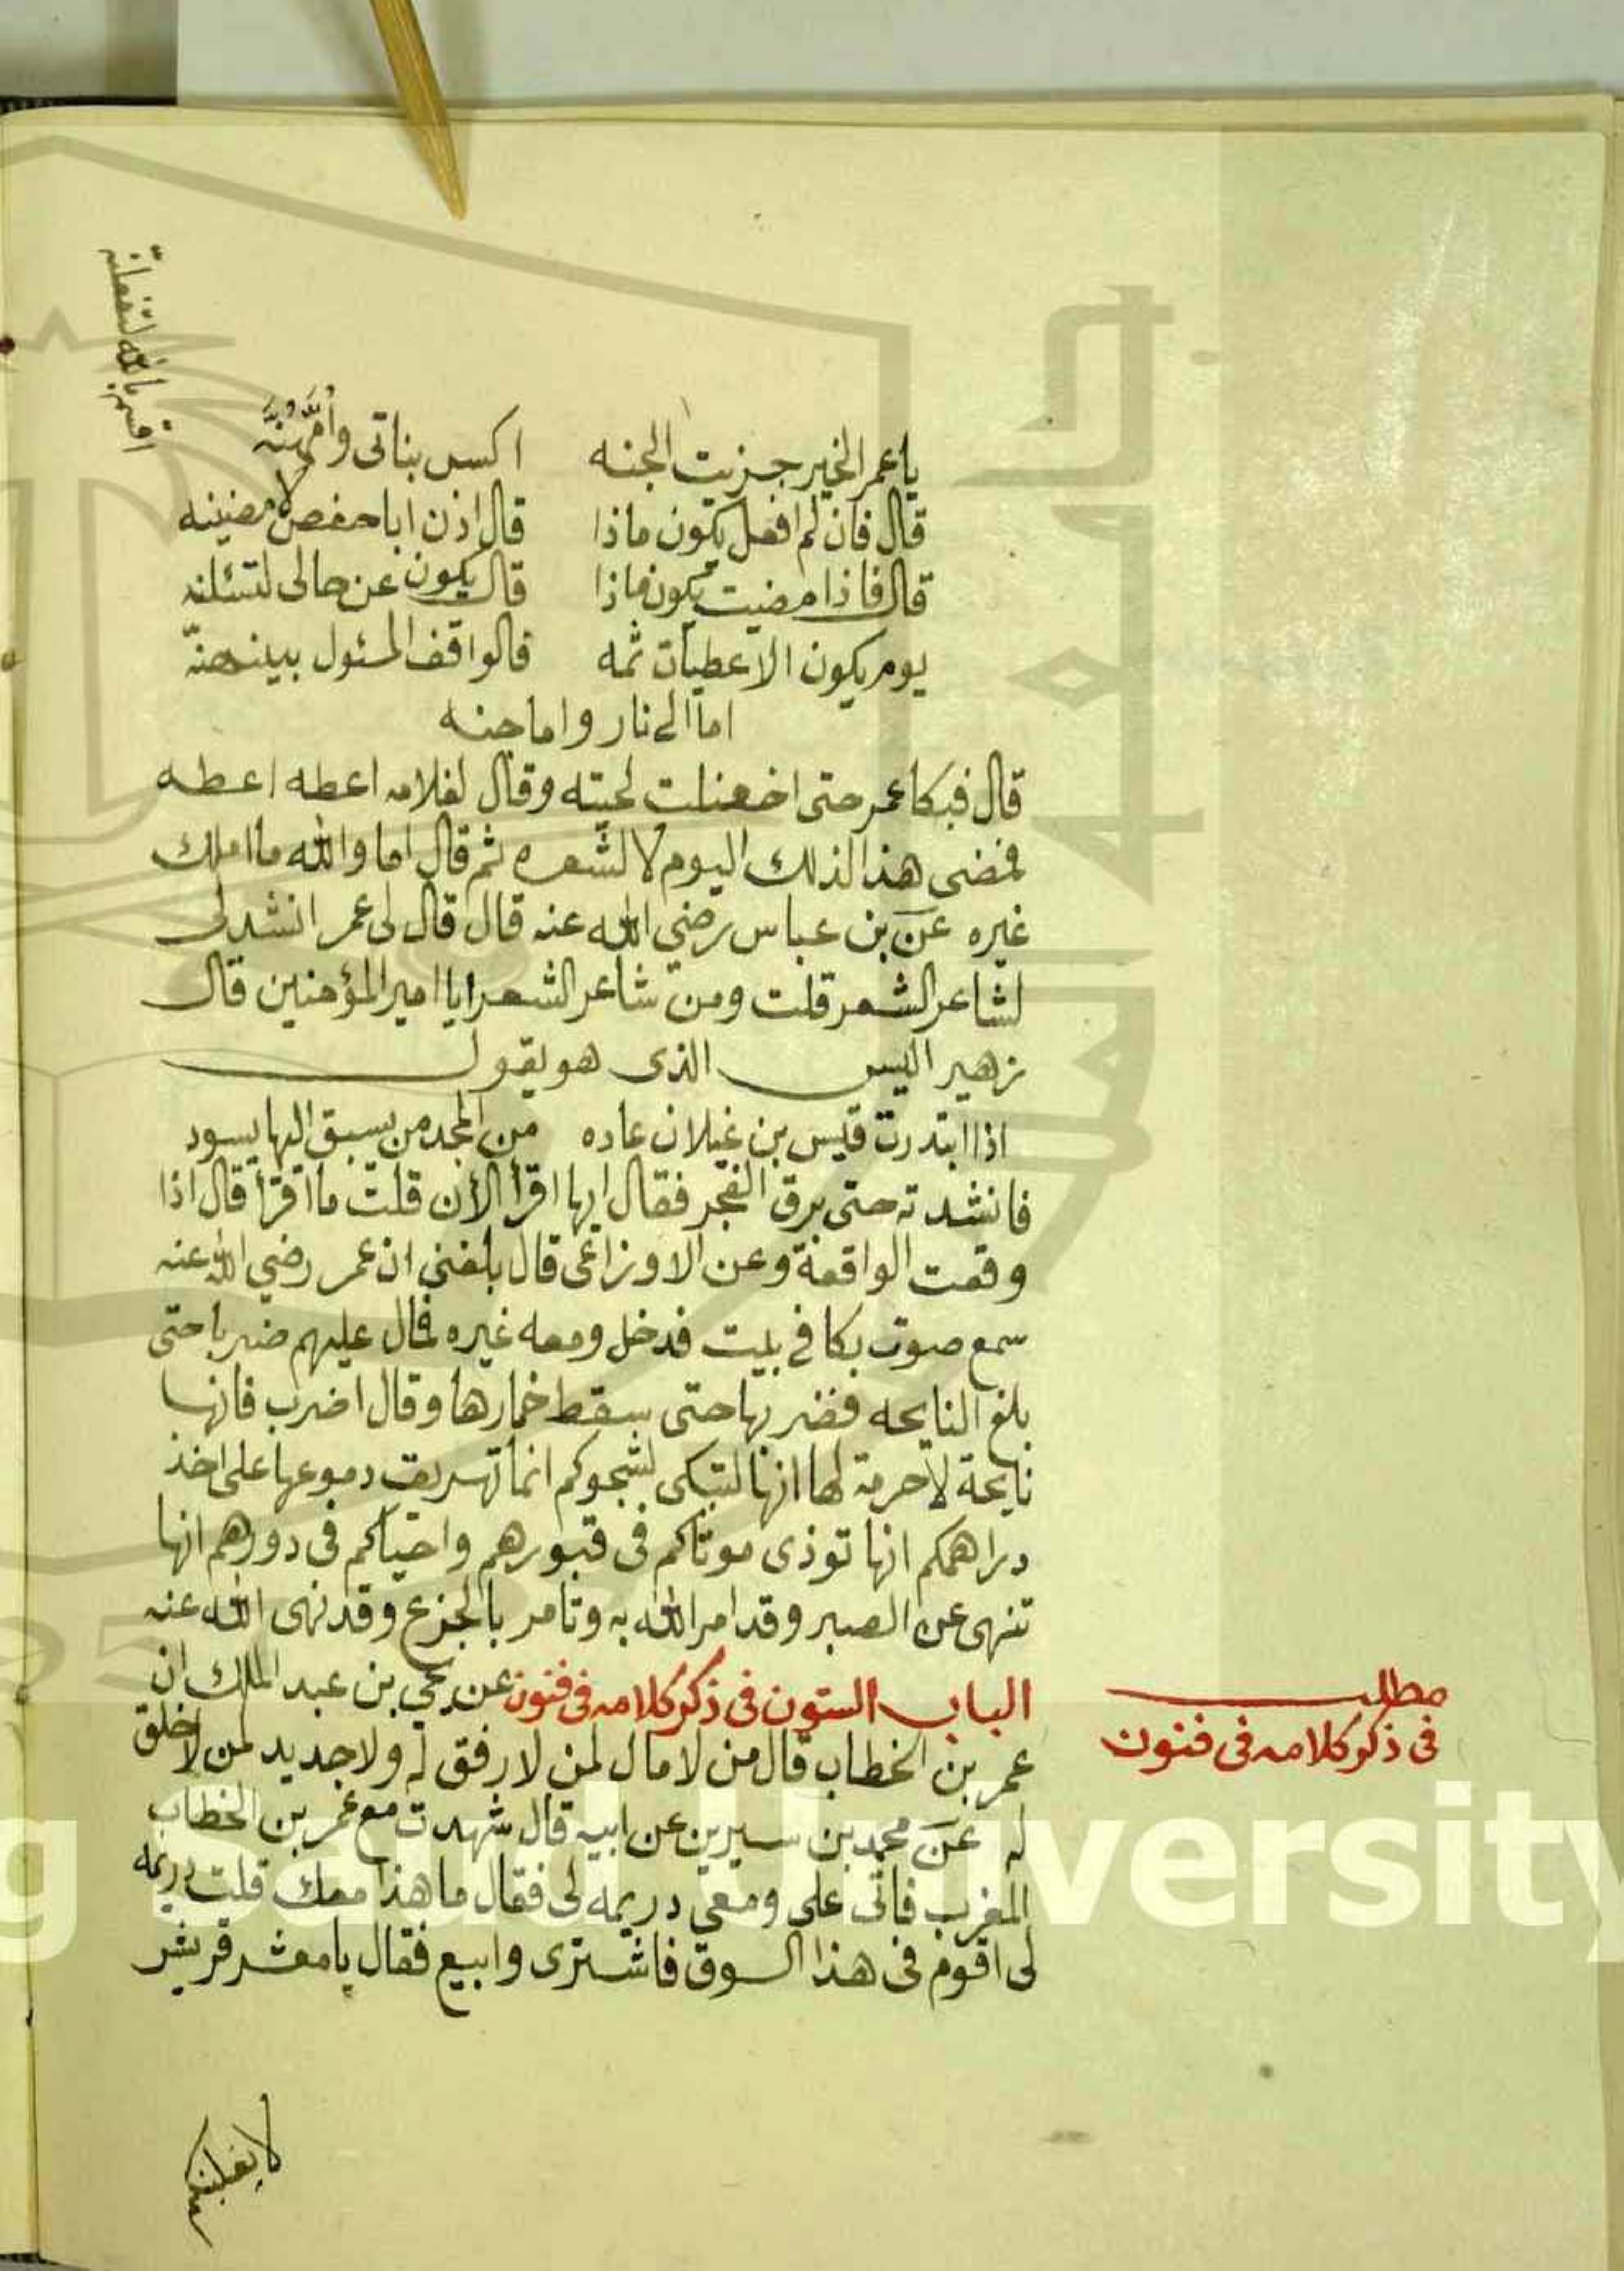 اقسم بالله لتفعلنه
يا عمر الخير جزيت الجنه اكس بناتى وأُمَّهُنَّه
قال فان لم افعل يكون ماذا قال اذن ابا حفص لامضينه
قال فاذا مضيت يكون ماذا قال يكون عن حالى لتسئلنه
يوم يكون الاعطيات ثمه قالواقف المسئول بينهنّه
اما الى نار واما جنه
قال فبكا عمر حتى اخضلت لحيته وقال لغلامه اعطه اعطه
قمضى هذا لذلك اليوم لا لشعره ثم قال اما والله ما املك
غيره عن بن عباس رضي الله عنه قال قال لى عمر انشد لى
لشاعر الشعر قلت ومن شاعر الشعرايا امير المؤمنين قال
زهير اليس الذى هو يقول
اذا ابتدرت قيس بن غيلان عاده من المجد من يسبق اليها يسود
فانشدته حتى برق الفجر فقال ايها اقرأ الأن قلت ما اقرأ قال اذا
وقعت الواقعة وعن الاوزاعى قال بلغني ان عمر رضي الله عنه
سمع صوت بكا في بيت فدخل ومعه غيره فمال عليهم ضربا حتى
بلغ النايحه فضربها حتى سقط خمارها وقال اضرب فانها
نايحة لا حرمة لها انها لتبكى لشجوكم انما تهريق دموعها على اخذ
دراهمكم انها توذى موتاكم فى قبورهم واحياكم فى دورهم انها
تنهى عن الصبر وقد امر الله به وتامر بالجزع وقد نهى الله عنه
الباب الستون فى ذكر كلامه فى فنون عن يحي بن عبد الملك ان
مطلب
فى ذكر كلامه فى فنون
عمر بن الخطاب قال من لا مال لمن لا رفق له ولا جديد لمن لا خلق
له عن محمد بن سيرين عن ابيه قال شهدت مع عمر بن الخطاب
المغرب فاتى على ومعى دريمه لى فقال ما هذا معك قلت دريمه
لى اقوم فى هذا السوق فاشترى وابيع فقال يا معشر قريش
لا يغلبنكم
King Saud University